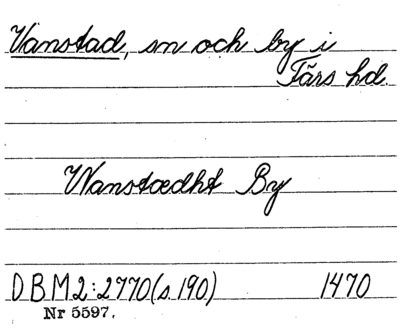 Vanstad, sn och by i
Färs hd.
Wanstædht By
DBM2:2770(s.190) 1470
Nr 5597.